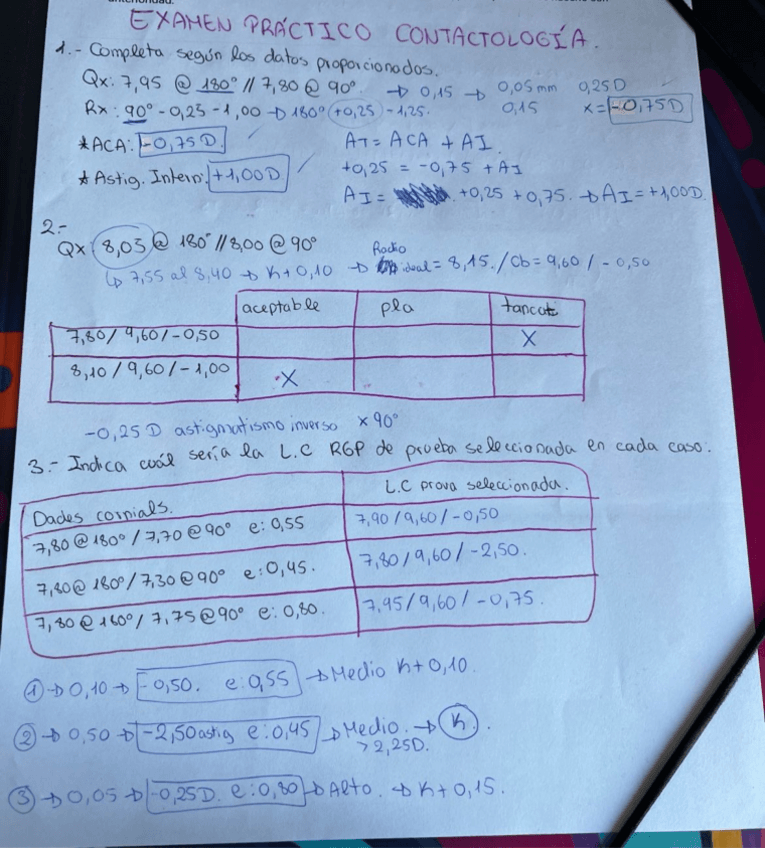 EXAMEN PRÁCTICO CONTACTOLOGÍA.
1.- Completa según los datos proporcionados.
Qx: 7,95 @ 180° // 7,80 @ 90°. → 0,15 → 0,05mm 0,25D
0,15 x= -0,75D
Rx: 90° -0,25 -1,00 → 180° +0,25 -1,25.
*ACA: -0,75D. AT = ACA + AI.
+0,25 = -0,75 + AI
* Astig. Intern: +1,00D
AI = +0,25 +0,75. → AI = +1,00D.
2.-
Qx 8,03 @ 180° // 8,00 @ 90°
↳ 7,55 al 8,40 → K+0,10 → Radio ideal = 8,15. / Cb = 9,60 / -0,50
aceptable pla tancat
7,80 / 9,60 / -0,50 X
8,10 / 9,60 / -1,00 X
-0,25 D astigmatismo inverso x 90°
3.- Indica cuál sería la L.C RGP de prueba seleccionada en cada caso:
Dades cornials. L.C prova seleccionada.
7,80 @ 180° / 7,70 @ 90° e: 0,55 7,90 / 9,60 / -0,50
7,80 @ 180° / 7,30 @ 90° e: 0,45. 7,80 / 9,60 / -2,50.
7,80 @ 180° / 7,75 @ 90° e: 0,80. 7,95 / 9,60 / -0,75.
① → 0,10 → -0,50. e: 0,55 → Medio K+0,10.
② → 0,50 → -2,50 astig e: 0,45 → Medio. → K.
> 2,25D.
③ → 0,05 → -0,25D. e: 0,80 → Alto. → K+0,15.